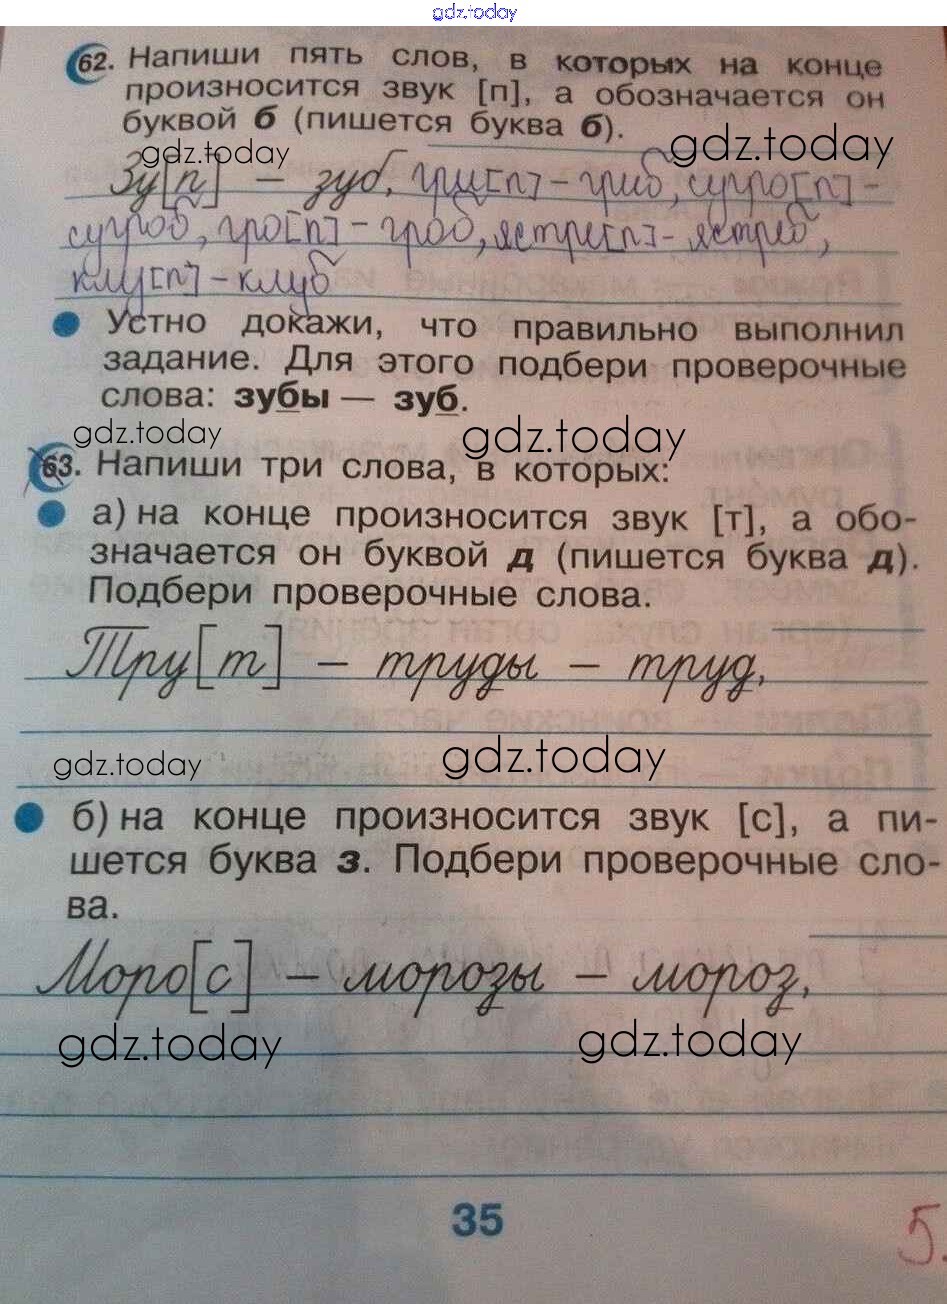 gdz.today
62. Напиши пять слов, в которых на конце
произносится звук [п], а обозначается он
буквой б (пишется буква б).
gdz.today gdz.today
Зу[п] – зуб, гри[п] – гриб, сугро[п] –
сугроб, гро[п] – гроб, ястре[п] – ястреб,
клу[п] – клуб
Устно докажи, что правильно выполнил
задание. Для этого подбери проверочные
слова: зубы — зуб.
gdz.today gdz.today
63. Напиши три слова, в которых:
а) на конце произносится звук [т], а обо-
значается он буквой д (пишется буква д).
Подбери проверочные слова.
Тру[т] – труды – труд,
gdz.today gdz.today
б) на конце произносится звук [с], а пи-
шется буква з. Подбери проверочные сло-
ва.
Моро[с] – морозы – мороз,
gdz.today gdz.today
35
5.